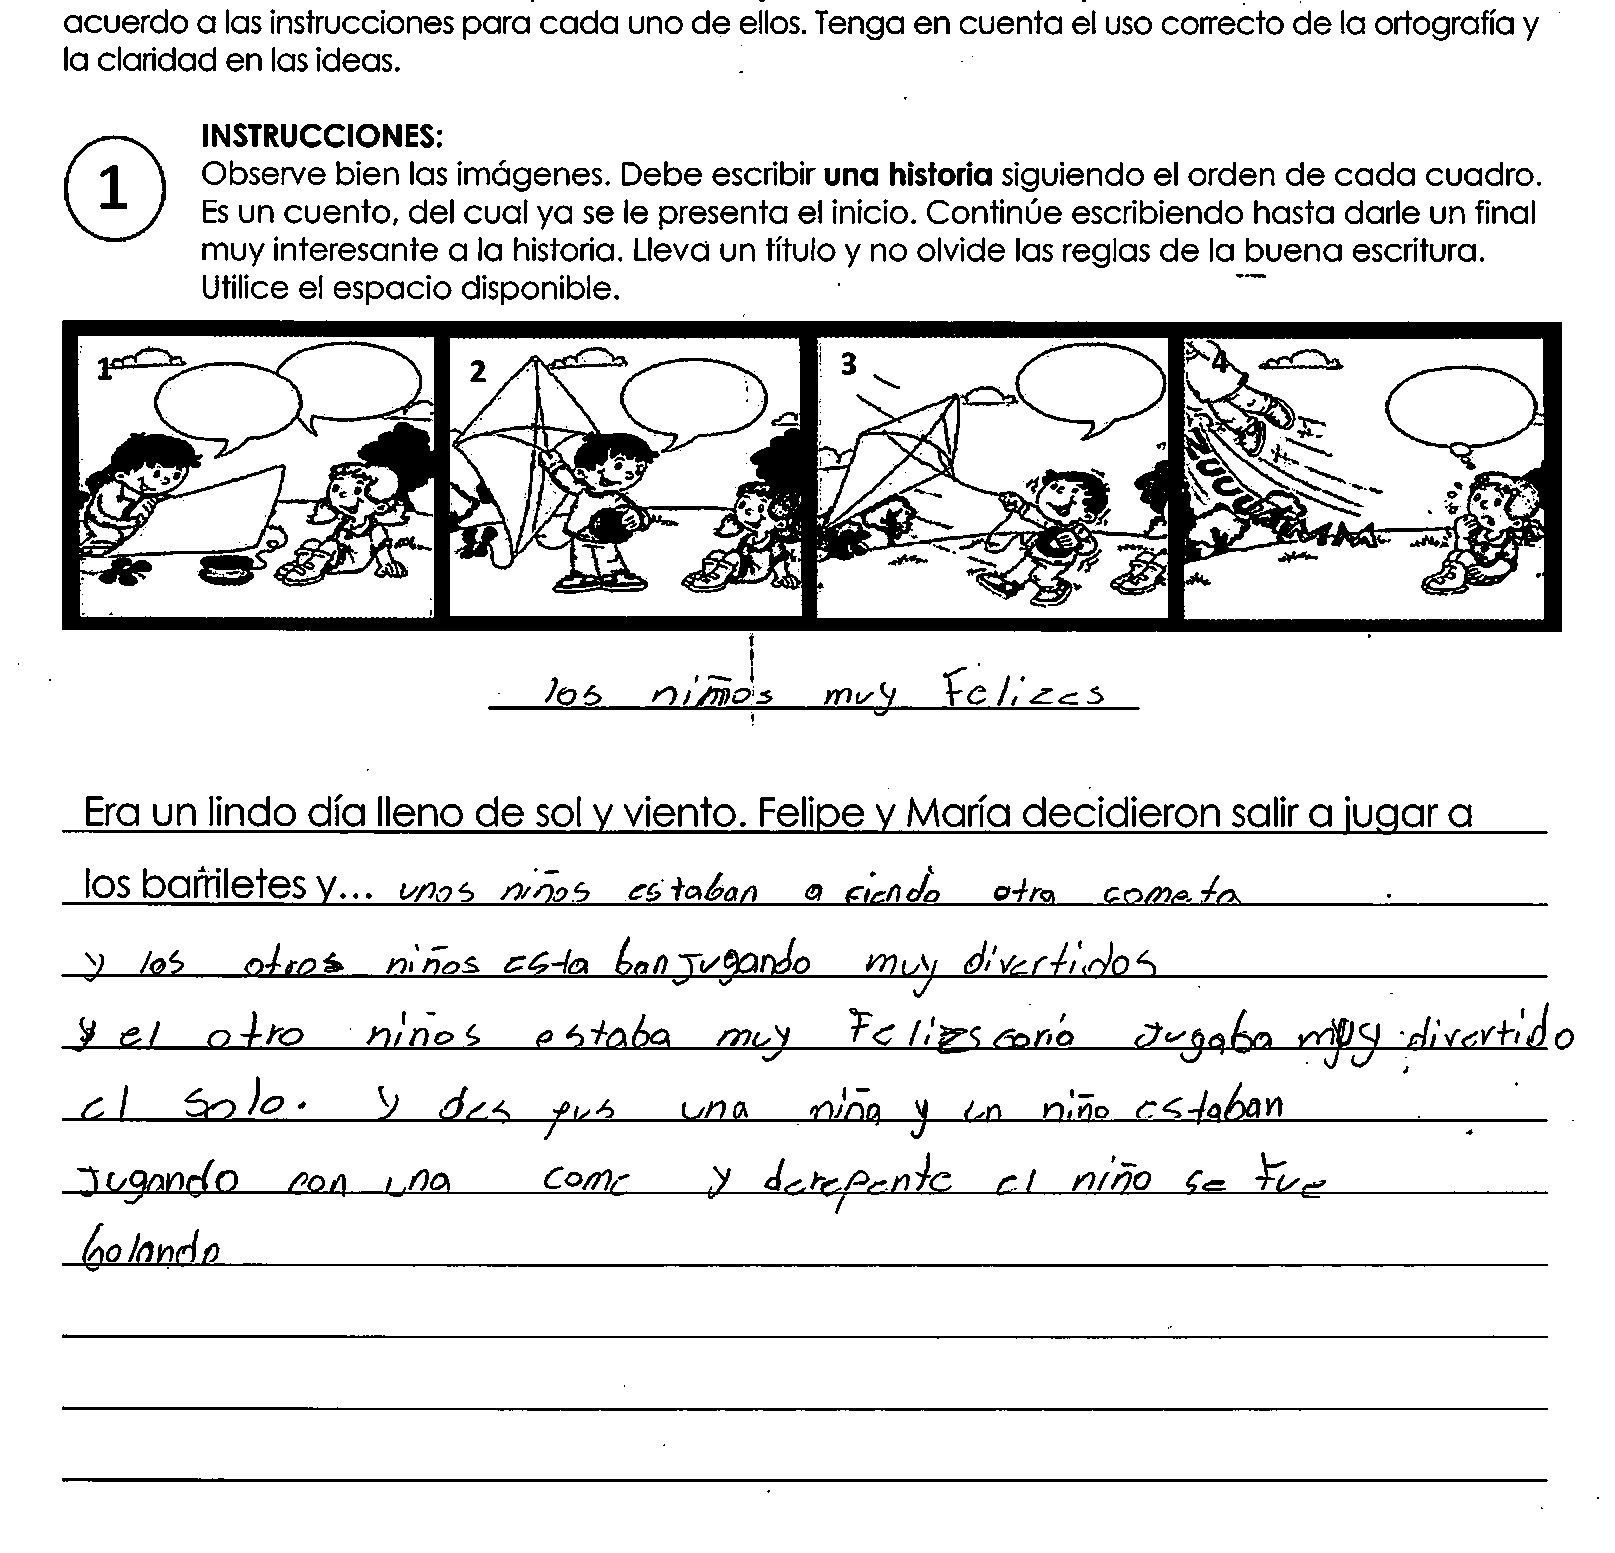 acuerdo a las instrucciones para cada uno de ellos. Tenga en cuenta el uso correcto de la ortografía y
la claridad en las ideas.
1
INSTRUCCIONES:
Observe bien las imágenes. Debe escribir una historia siguiendo el orden de cada cuadro.
Es un cuento, del cual ya se le presenta el inicio. Continúe escribiendo hasta darle un final
muy interesante a la historia. Lleva un título y no olvide las reglas de la buena escritura.
Utilice el espacio disponible.
1 2 3 4
los niños muy Felizes
Era un lindo día lleno de sol y viento. Felipe y María decidieron salir a jugar a
los barriletes y... unos niños estaban a ciendo otra cometa
y los otros niños esta ban jugando muy divertidos
y el otro niños estaba muy Felizs Jugaba muy divertido
el solo. y des pus una niña y un niño estaban
Jugando con una come y derepente el niño se fue
bolando